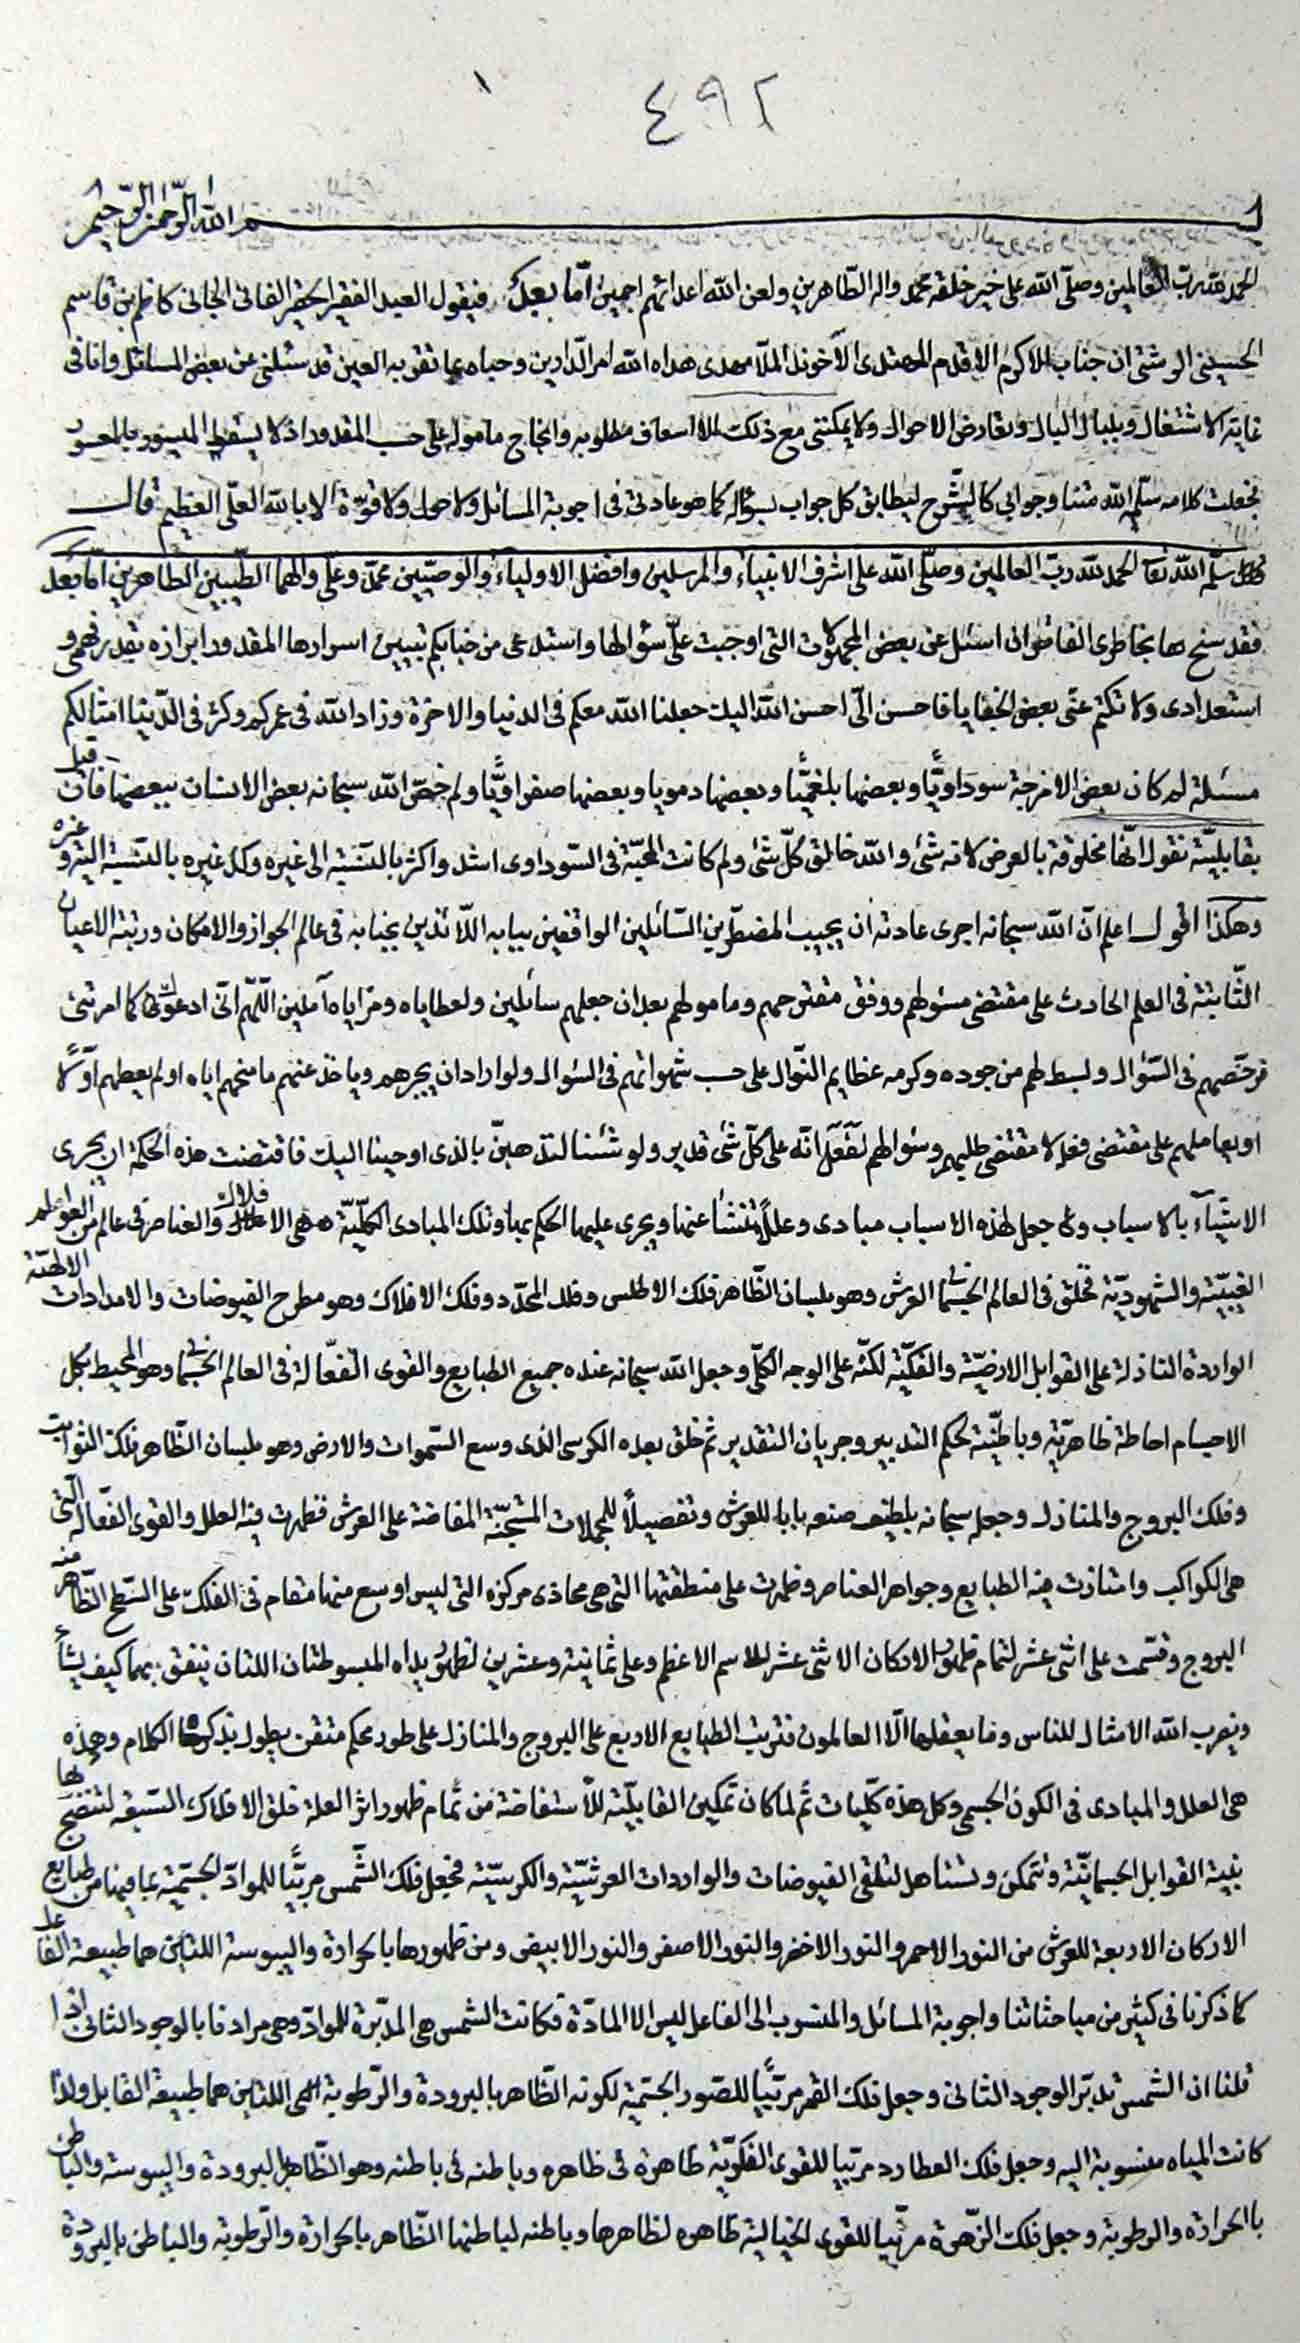 ٤٩٢ ١
بسم الله الرحمن الرحيم
الحمد لله رب العالمين وصلى الله على خير خلقه محمد واله الطاهرين ولعن الله اعدائهم اجمعين اما بعد فيقول العبد الفقير الحقير الفانى الجانى كاظم بن قاسم
الحسينى الرشتى ان جناب الاكرم الافخم المهتدى الآخوند الملا مهدى هداه الله امر الدارين وحباه بما تقر به العين قد سئلنى عن بعض المسائل وانا فى
غاية الاشتغال وبلبال البال وتعارض الاحوال ولا يمكننى مع ذلك الا اسعاف مطلوبه وانجاح مأموله على حسب المقدور اذ لا يسقط الميسور بالمعسور
فجعلت كلامه سلمه الله متنا وجوابى كالشرح ليطابق كل جواب بسؤاله كما هو عادتى فى اجوبة المسائل ولا حول ولا قوة الا بالله العلى العظيم قال
سلمه الله تعا الحمد لله رب العالمين وصلى الله على اشرف الانبياء والمرسلين وافضل الاولياء والوصيين محمد وعلى والهما الطيبين الطاهرين اما بعد
فقد سنح بخاطرى الفاطر ان اسئل عن بعض المجهولات التى اوجبت على سؤالها واستدعى من جنابكم تبيين اسرارها المقدور ابرازه بقدر فهمى و
استعدادى ولا تكتم عنى بعض الخفايا فاحسن الى احسن الله اليك جعلنا الله معكم فى الدنيا والاخرة وزاد الله فى عمركم وكثر فى الدنيا امثالكم
مسئلة لم كان بعض الامزجة سوداويا وبعضها بلغميا وبعضها دمويا وبعضها صفراويا ولم خص الله سبحانه بعض الانسان ببعضها فان قيل
بقابلية نقول انها مخلوقة بالعرض لانه شئ والله خالق كل شئ ولم كانت المحبة فى السوداوى اشد واكثر بالنسبة الى غيره وكل غيره بالنسبة اليه وغيره
وهكذا اقول اعلم ان الله سبحانه اجرى عادته ان يجيب المضطرين السائلين الواقفين ببابه اللائذين بجنابه فى عالم الجواز والامكان ورتبة الاعيان
الثابتة فى العلم الحادث على مقتضى مسئولهم ووفق مقترحهم ومأمولهم بعد ان جعلهم سائلين ولعطاياه ومزاياه آملين اللهم انى ادعوك كما امرتنى
فرخصهم فى السؤال وبسط لهم من جوده وكرمه عظايم النوال على حسب شهواتهم فى السؤال ولو اراد ان يجبرهم وياخذ عنهم ما منحهم اياه او لم يعطهم اولا
او يعاملهم على مقتضى فعله لا مقتضى طلبهم وسؤالهم لفعل انه على كل شئ قدير ولو شئنا لنذهبن بالذى اوحينا اليك فاقتضت هذه الحكمة ان يجرى
الاشياء بالاسباب وجعل لهذه الاسباب مبادى وعللا تنشأ عنها ويجرى عليها الحكم بها وتلك المبادى الكلية هى الافلاك والعناصر فى عالم من العوالم
الغيبية والشهودية فخلق فى العالم الجسمانى العرش وهو بلسان الظاهر فلك الاطلس وفلك المحدد وفلك الافلاك وهو مطرح الفيوضات والامدادات الالهية
الواردة النازلة على القوابل الارضية والفلكية لكنه على الوجه الكلى وجعل الله سبحانه عنده جميع الطبايع والقوى الفعالة فى العالم الجسمانى وهو المحيط بكل
الاجسام احاطة ظاهرية وباطنية لحكم التدبير وجريان التقدير ثم خلق بعده الكرسى الذى وسع السموات والارض وهو بلسان الظاهر فلك الثوابت
وفلك البروج والمنازل وجعله سبحانه بلطيف صنعه بابا للعرش وتفصيلا للمجملات المفاضة على العرش فظهرت فيه العلل والقوى الفعالة التى
هى الكواكب وامتازت فيه الطبايع وجواهر العناصر وظهرت على منطقتها التى هى محاذى مركزه التى ليس اوسع منها مقام فى الفلك على السطح الظاهر منه
البروج وقسمت على اثنى عشر لتمام ظهور الاركان الاثنى عشر للاسم الاعظم وعلى ثمانية وعشرين لظهور يداه المبسوطتان اللتان ينفق بهما كيف يشاء
ويضرب الله الامثال للناس وما يعقلها الا العالمون فترتبت الطبايع الاربع على البروج والمنازل على طور محكم متقن يطول بذكرها الكلام وهذه
هى العلل والمبادى فى الكون الجسمى وكل هذه كليات ثم لما كان تمكين القابلية للاستفاضة من تمام ظهور اثر العلة خلق الافلاك السبعة لتنضج بها
بنية القوابل الجسمانية وتتمكن وتستاهل لتلقى الفيوضات والواردات العرشية والكرسية فجعل فلك الشمس مربيا للمواد الجسمية بما فيها من طبايع
الاركان الاربعة للعرش من النور الاحمر والنور الاخضر والنور الاصفر والنور الابيض ومن ظهورها بالحرارة واليبوسة اللتين هما طبيعة الفاعل
كما ذكرنا فى كثير من مباحثاتنا واجوبة المسائل والمنسوب الى الفاعل ليس الا المادة فكانت الشمس هى المدبرة للمواد وهى مرادنا بالوجود الثانى اذا
قلنا ان الشمس تدبر الوجود الثانى وجعل فلك القمر مربيا للصور الجسمية لكونه الظاهر بالبرودة والرطوبة اللتين هما طبيعة القابل ولذا
كانت المياه منسوبة اليه وجعل فلك العطارد مربيا للقوى الفكرية ظاهرة فى ظاهره وباطنه فى باطنه وهو الظاهر بالبرودة واليبوسة والباطن
بالحرارة والرطوبة وجعل فلك الزهرة مربيا للقوى الخيالية ظاهره لظاهرها وباطنه لباطنها الظاهر بالحرارة والرطوبة والباطن بالبرودة